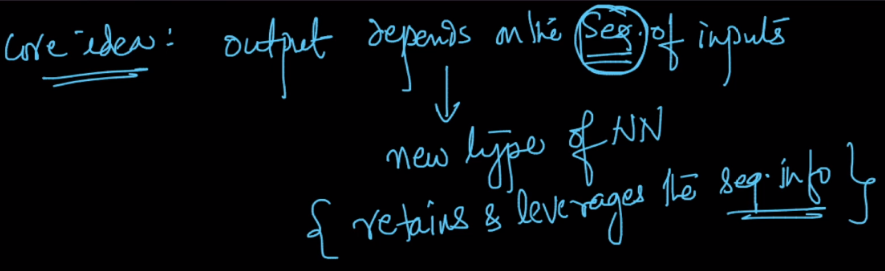 core idea: output depends on the Seq. of inputs
new type of NN
{ retains & leverages the seq. info }